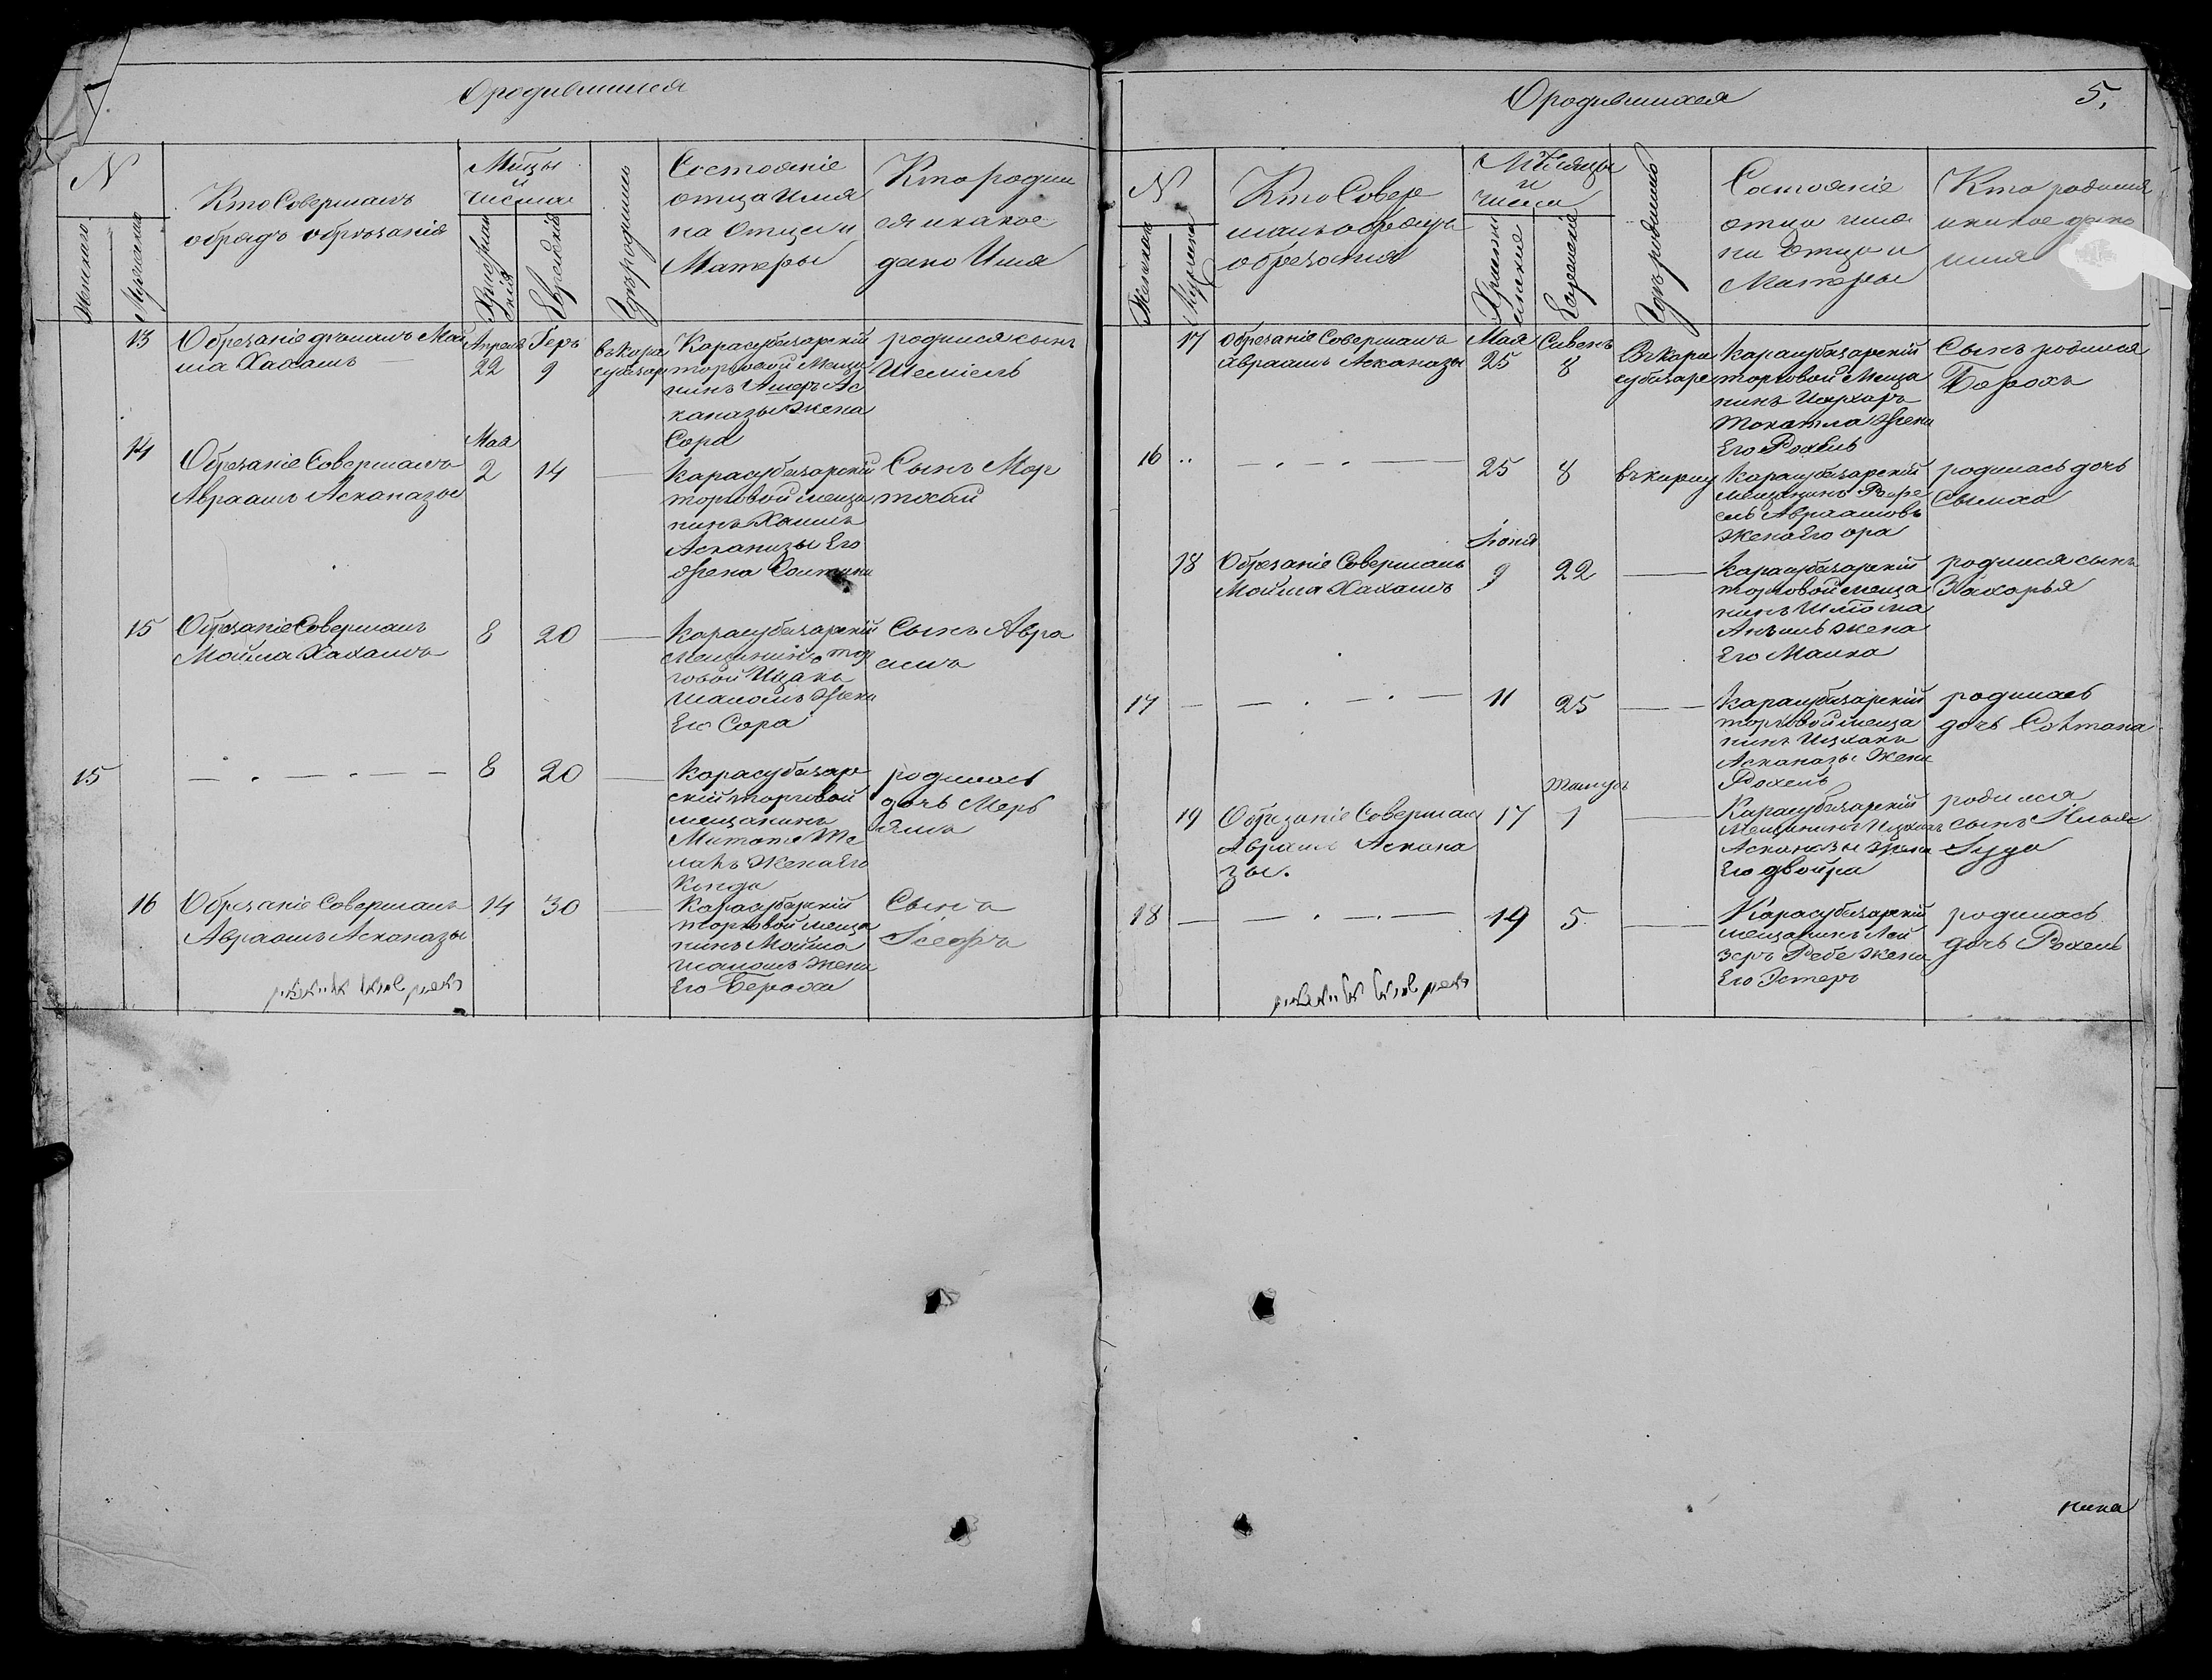 О родившихся
N
Женскаго
Мужескаго
Кто Совершалъ
обрядъ обрѣзанія
Мѣцы
и
числа
Христиан
скія
Еврейскія
Гдѣ родились
Состояніе
отца имя
на отца и
Матеры
Кто родил
ся и какое
дано Имя
13
Обрезаніе дѣлалъ Мой
ша Хахамъ
Апреля
22
Геръ
9
въ Кара
субазар
Карасубазарскій
торговой Меща
нинъ Ашеръ Ас
каназы Жена
Сора
родился сынъ
Шемiель
14
Обрезаніе Совершалъ
Авраамъ Асканазы
Мая
2
14
Карасубазарскій
торговой меща
нинъ Хаимъ
Асканазы Его
Жена Солтана
Сынъ Мор
тхай
15
Обрезаніе Совершалъ
Мойша Хахамъ
8
20
Карасубазарскій
Мещанинъ тор
говой Ицакъ
Шаломъ Жена
Его Сора
Сынъ Авра
амъ
15
8
20
Карасубазар
скій торговой
мещанинъ
Жена Его
родилась
дочь Мерь
ямъ
16
Обрезаніе Совершалъ
Авраамъ Асканазы
14
30
торговой меща
нинъ Мойша
Шаломъ Жена
Его Бероха
Сынъ
Іосефъ
О родившихся
5.
N
Женская
Мужеская
Кто Совер
шалъ обряды
обрезания
Мѣсяцы
и
числа
Христи
янские
Еврейские
Гдѣ родились
Состояніе
отца имя
на отца и
Матеры
Кто родился
и какое дано
имя
17
Обрезаніе Совершалъ
Авраамъ Асканазы
Мая
25
Сивенъ
8
Въ Кара
субазаре
Карасубазарскій
торговой Меща
нинъ Исухаръ
Токатла Жена
Его Рохель
Сынъ родился
Борохъ
16
25
8
Карасубазарскій
мещанинъ
Авраамовъ
Жена Его
родилась дочь
Сымха
18
Обрезаніе Совершалъ
Мойша Хахамъ
Іюня
9
22
Карасубазарскій
торговой меща
нинъ Шлома
жена
Его Малка
родился сынъ
Захорья
17
11
25
Карасубазарскій
торговой меща
нинъ Ицхакъ
Асканазы Жена
Рохель
родилась
дочь Солтана
19
Обрезаніе Совершал
Авраамъ Аскана
зы.
17
Тамузъ
1
Карасубазарскій
Мещанинъ Ицхакъ
Асканазы Жена
Его Двойра
родился
сынъ Ильяс
Іуда
18
19
5
Карасубазарскій
мещанинъ Лей
зеръ Ребе Жена
Его Эстеръ
родилась
дочь Рохель